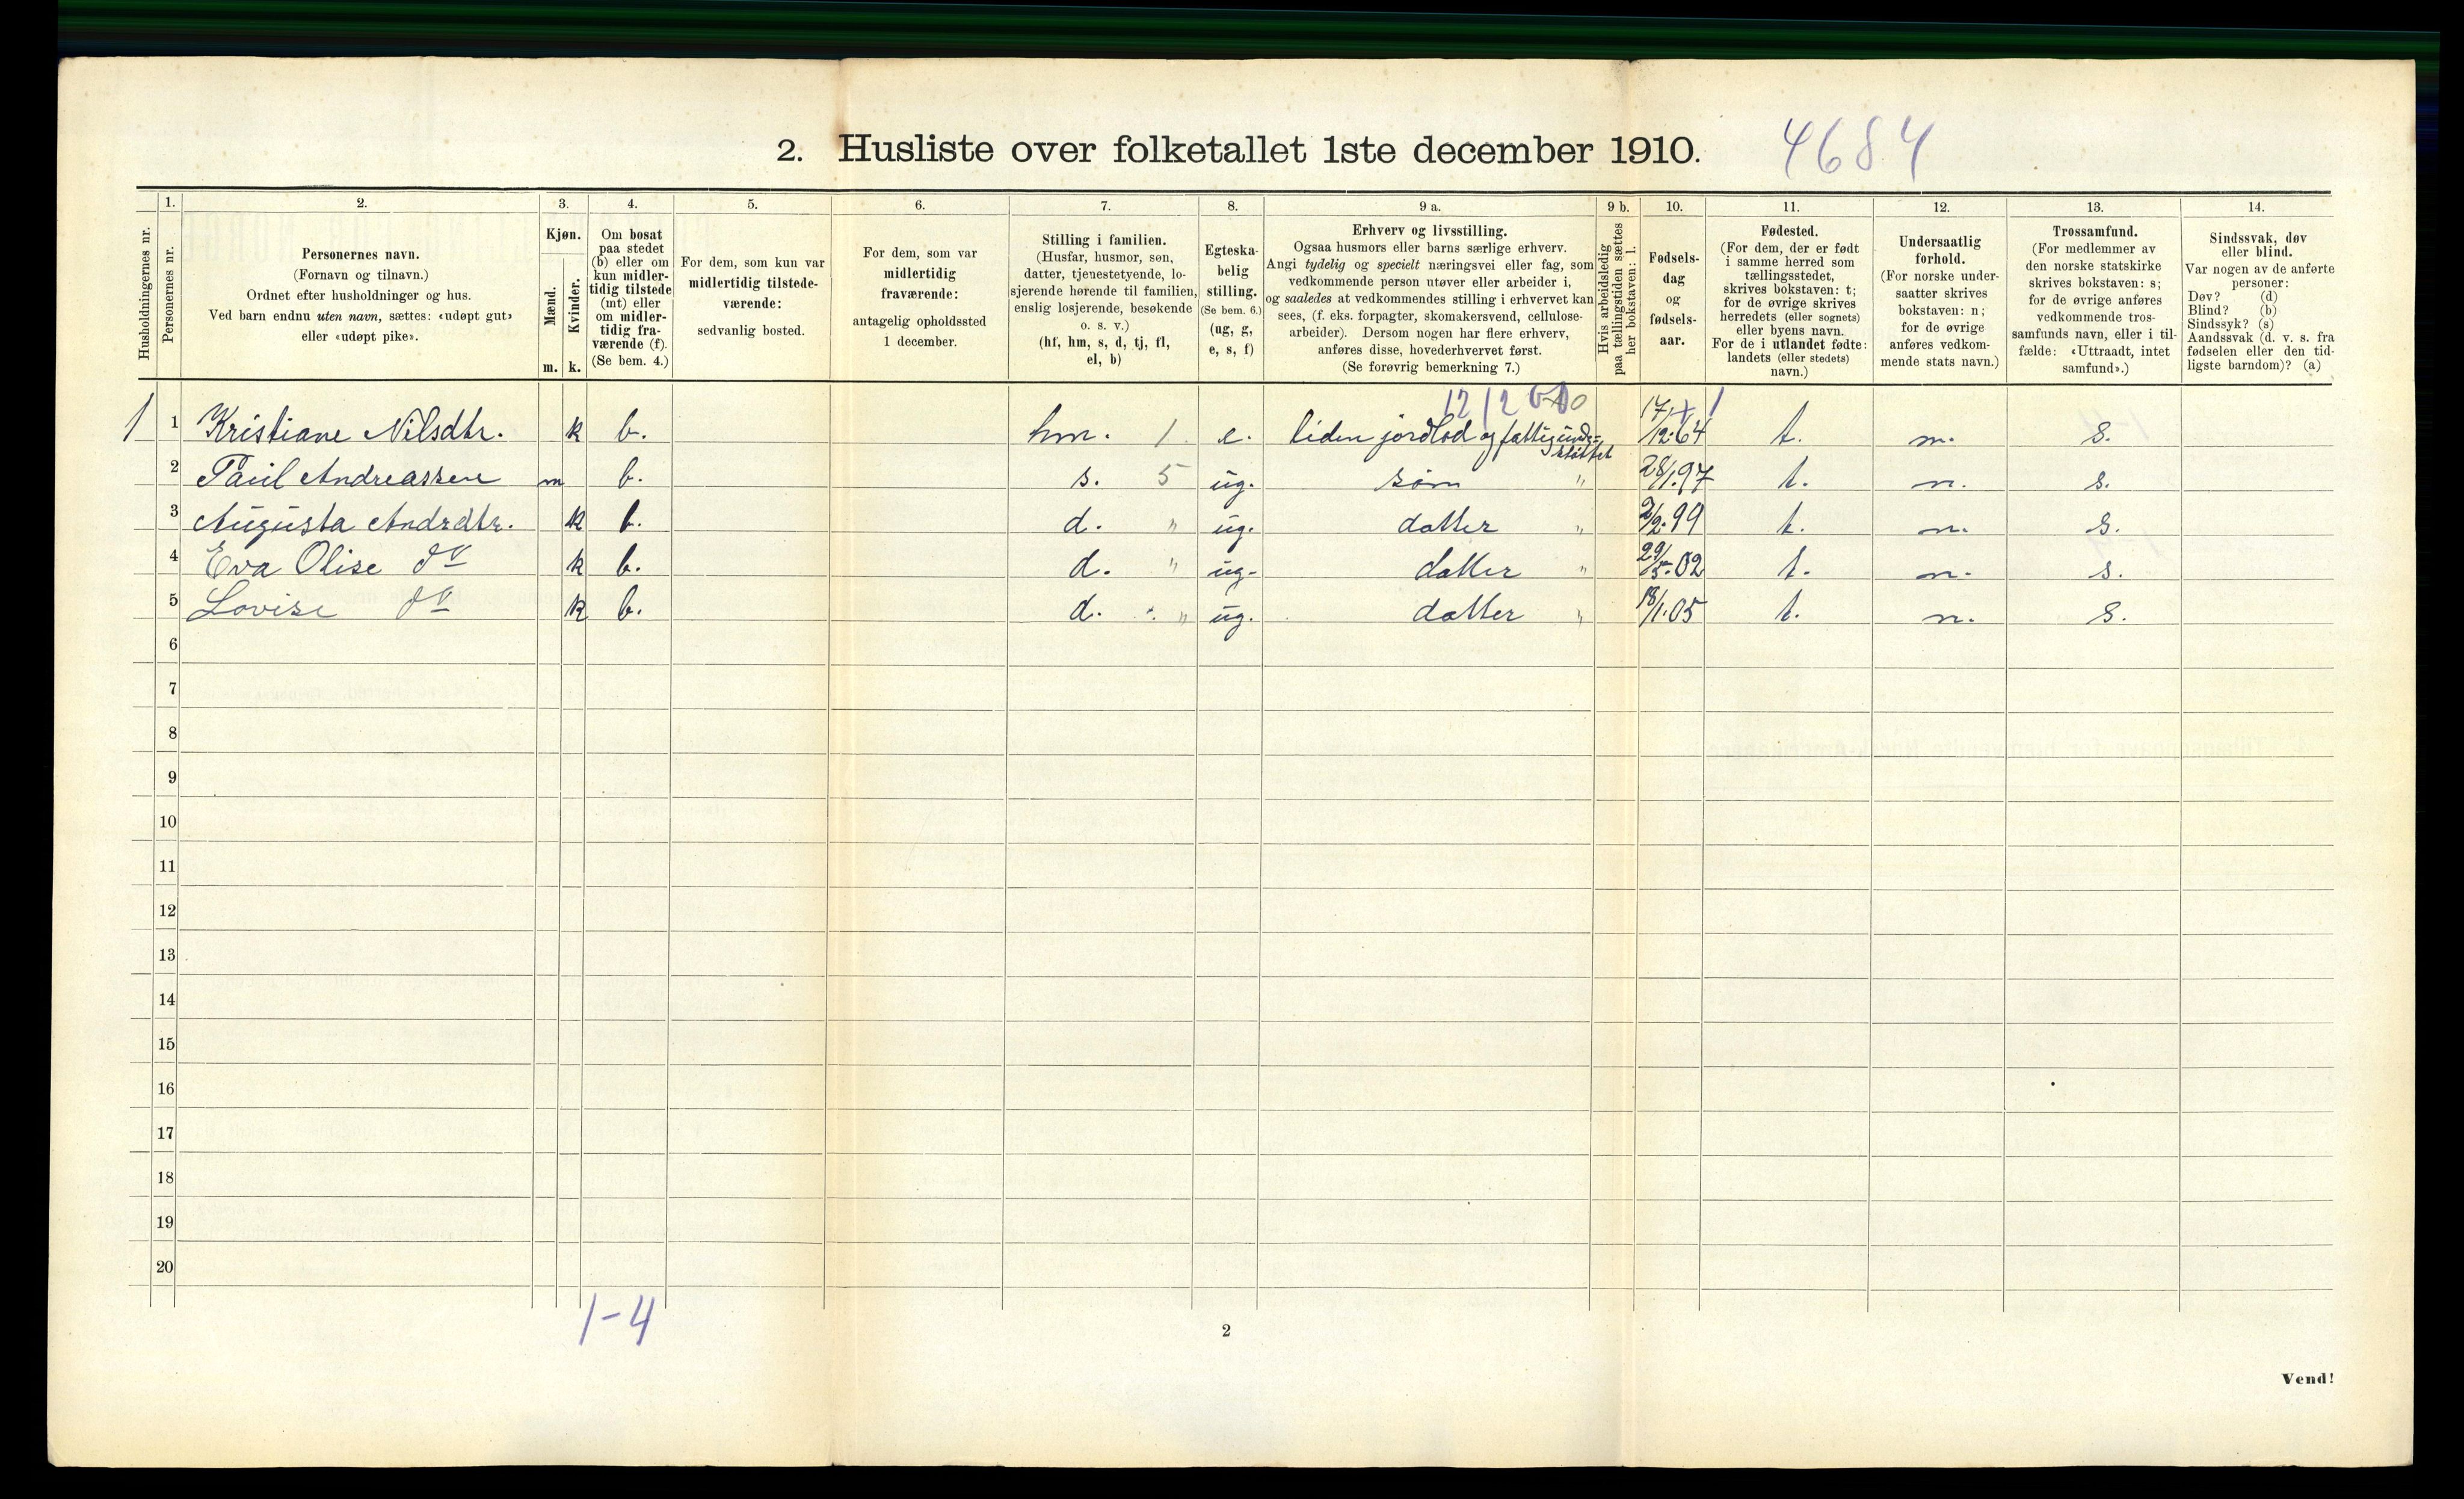 2. Husliste over folketallet 1ste december 1910. 4684
Husholdningernes nr.
1. Personernes nr.
2. Personernes navn.
(Fornavn og tilnavn.)
Ordnet efter husholdninger og hus.
Ved barn endnu uten navn, sættes: «udøpt gut»
eller «udøpt pike».
3. Kjøn.
Mænd. Kvinder.
m. k.
4. Om bosat
paa stedet
(b) eller om
kun midler-
tidig tilstede
(mt) eller
om midler-
tidig fra-
værende (f).
(Se bem. 4.)
5. For dem, som kun var
midlertidig tilstede-
værende:
sedvanlig bosted.
6. For dem, som var
midlertidig
fraværende:
antagelig opholdssted
1 december.
7. Stilling i familien.
(Husfar, husmor, søn,
datter, tjenestetyende, lo-
sjerende hørende til familien,
enslig losjerende, besøkende
o. s. v.)
(hf, hm, s, d, tj, fl,
el, b)
8. Egteska-
belig
stilling.
(Se bem. 6.)
(ug, g,
e, s, f)
9 a. Erhverv og livsstilling.
Ogsaa husmors eller barns særlige erhverv.
Angi tydelig og specielt næringsvei eller fag, som
vedkommende person utøver eller arbeider i,
og saaledes at vedkommendes stilling i erhvervet kan
sees, (f. eks. forpagter, skomakersvend, cellulose-
arbeider). Dersom nogen har flere erhverv,
anføres disse, hovederhvervet først.
(Se forøvrig bemerkning 7.)
9 b. Hvis arbeidsledig
paa tællingstiden sættes
her bokstaven: l.
10. Fødsels-
dag
og
fødsels-
aar.
11. Fødested.
(For dem, der er født
i samme herred som
tællingsstedet,
skrives bokstaven: t;
for de øvrige skrives
herredets (eller sognets)
eller byens navn.
For de i utlandet fødte:
landets (eller stedets)
navn.)
12. Undersaatlig
forhold.
(For norske under-
saatter skrives
bokstaven: n;
for de øvrige
anføres vedkom-
mende stats navn.)
13. Trossamfund.
(For medlemmer av
den norske statskirke
skrives bokstaven: s;
for de øvrige anføres
vedkommende tros-
samfunds navn, eller i til-
fælde: «Uttraadt, intet
samfund».)
14. Sindssvak, døv
eller blind.
Var nogen av de anførte
personer:
Døv? (d)
Blind? (b)
Sindssyk? (s)
Aandssvak (d. v. s. fra
fødselen eller den tid-
ligste barndom)? (a)
1 1 Kristiane Nilsdtr. k b. hm. 1 e. liden jordlod og fattigunder-støttet 17/12.64 t. n. s.
2 Paul Andreassen m b. s. 5 ug. søn " 28/1.97 t. n. s.
3 Augusta Andrdtr. k b. d. " ug. datter " 2/2.99 t. n. s.
4 Eva Olise do k b. d. " ug. datter " 29/5.02 t. n. s.
5 Lovise do k b. d. " ug. datter " 18/1.05 t. n. s.
6
7
8
9
10
11
12
13
14
15
16
17
18
19
20
1-4
2
Vend!